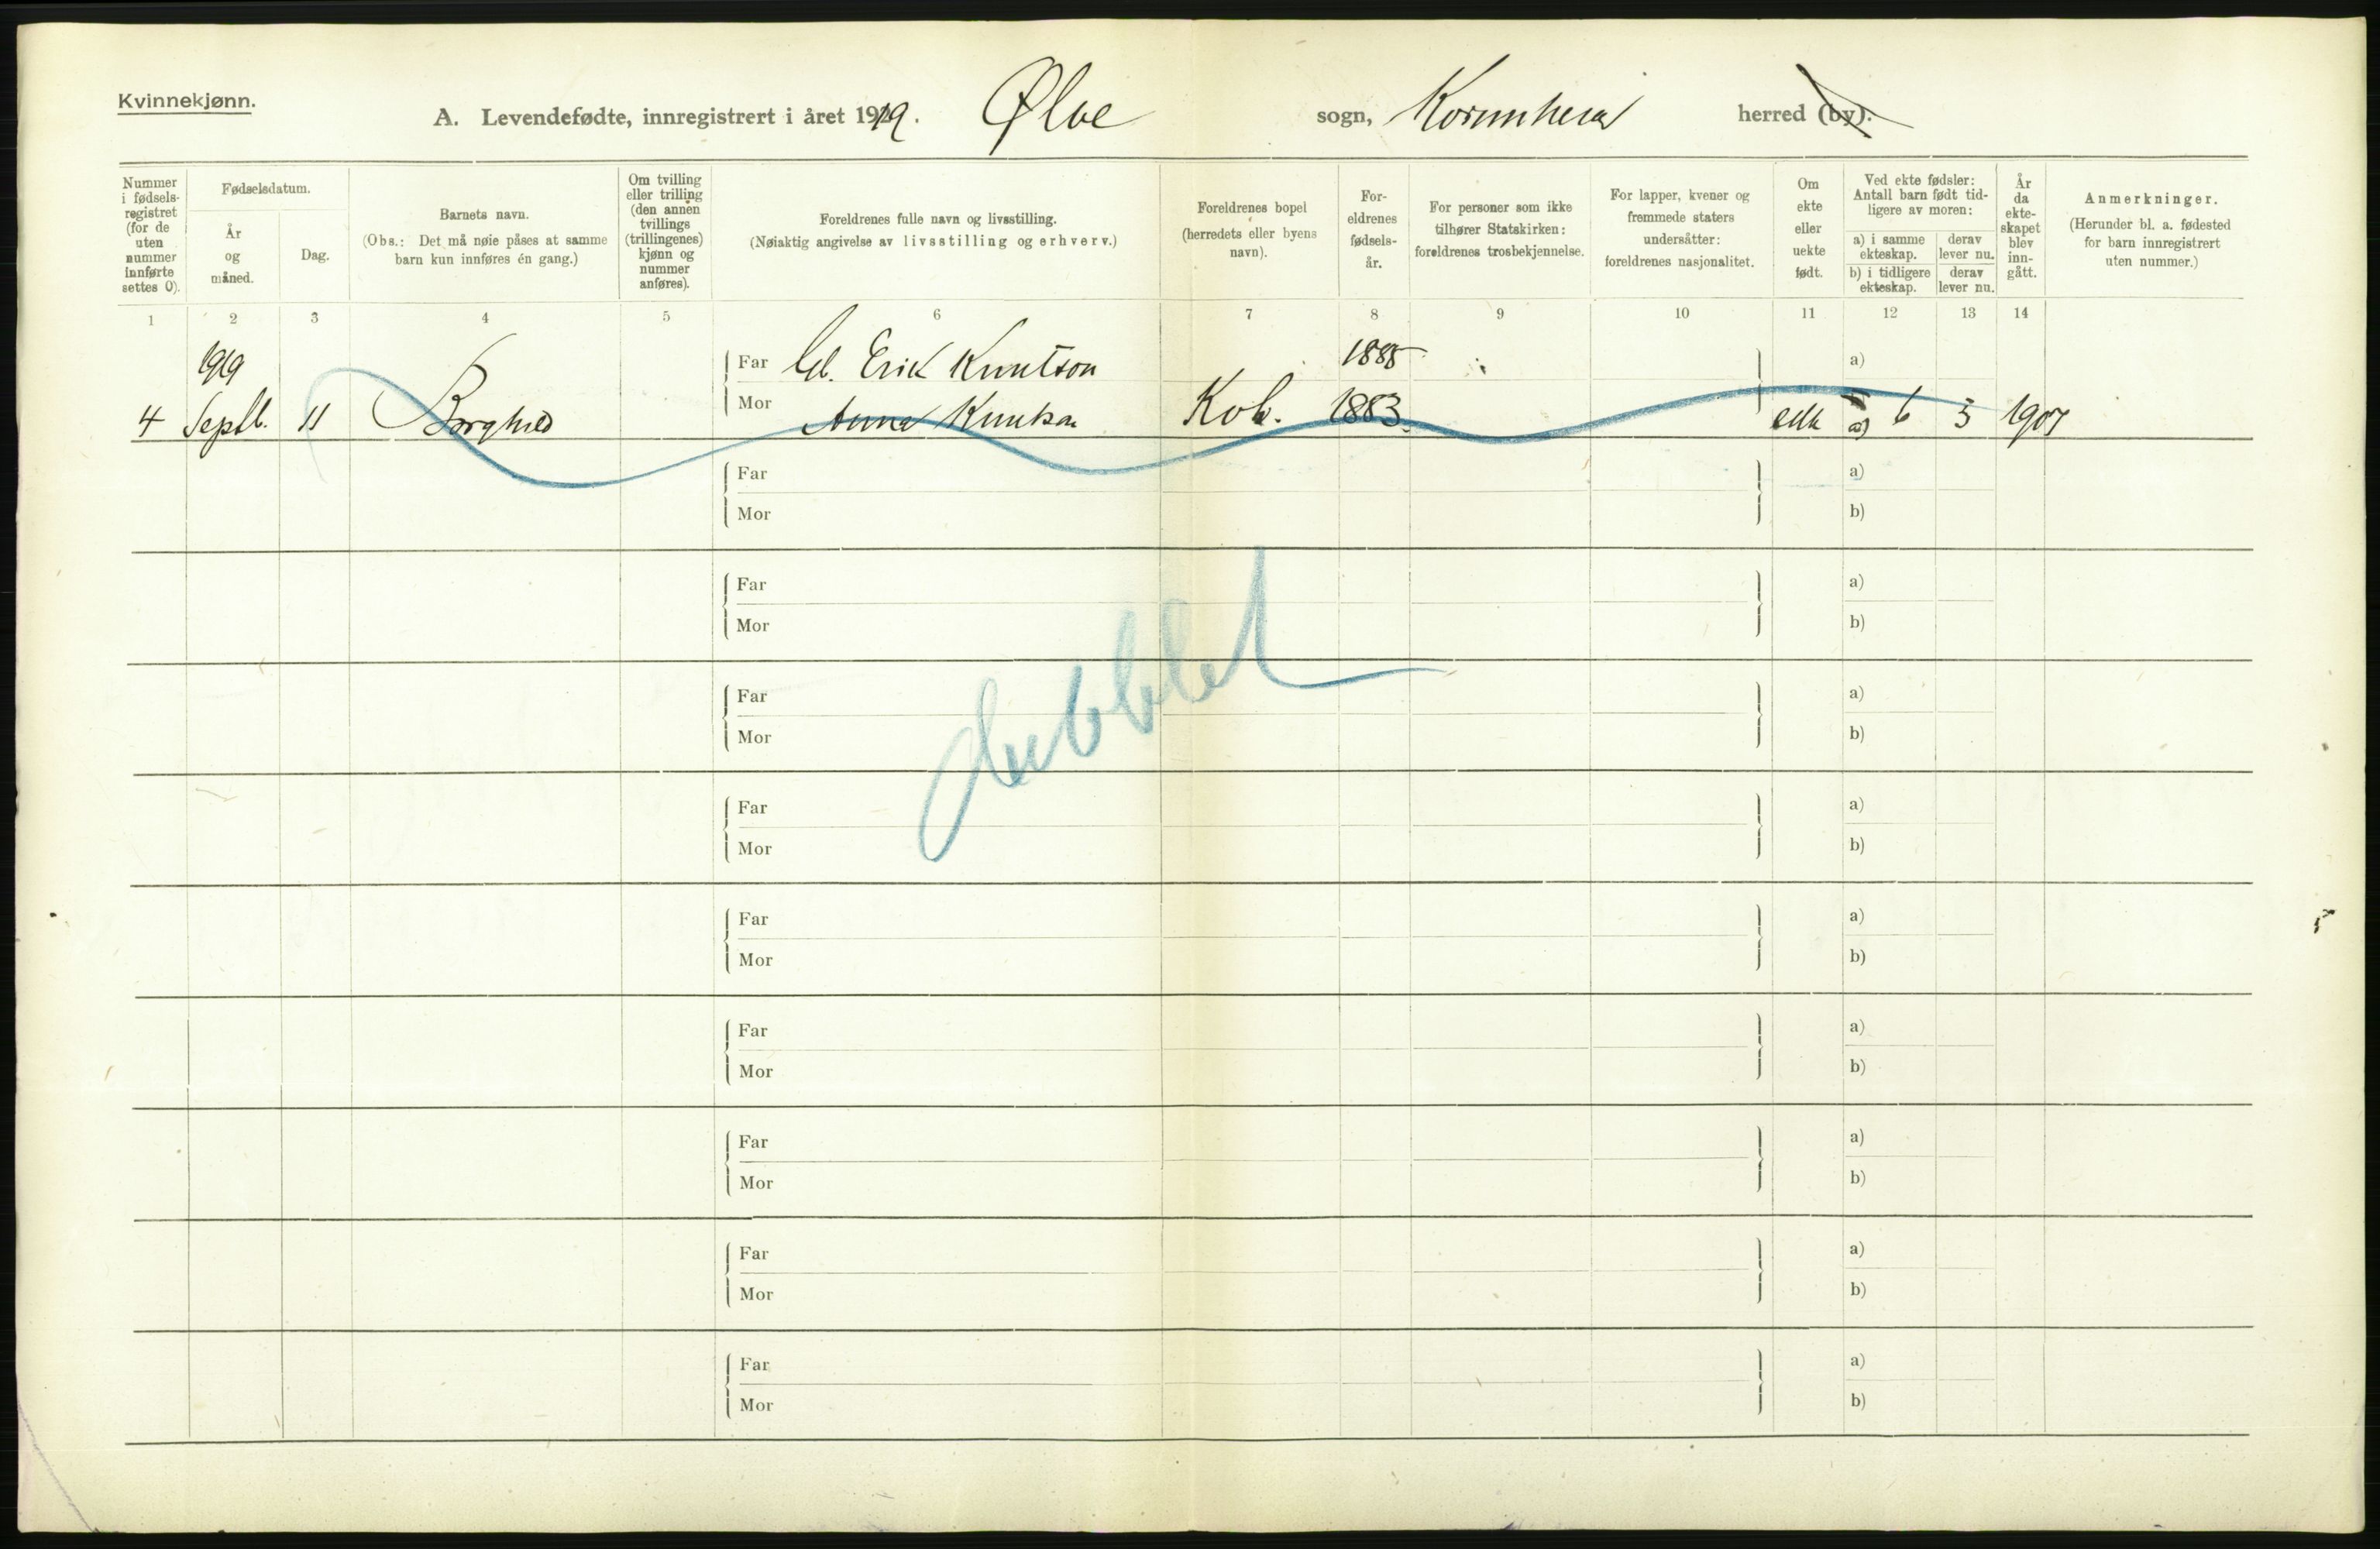 Kvinnekjønn.
A. Levendefødte, innregistrert i året 1919. Ølve sogn, herred (by):
Nummer i fødsels-registret (for de uten nummer innførte settes 0).
Fødselsdatum.
År og måned.
Dag.
Barnets navn.
(Obs.: Det må nøie påses at samme barn kun innføres én gang.)
Om tvilling eller trilling (den annen tvillings (trillingenes) kjønn og nummer anføres).
Foreldrenes fulle navn og livsstilling.
(Nøiaktig angivelse av livsstilling og erhverv.)
Foreldrenes bopel (herredets eller byens navn).
For-eldrenes fødsels-år.
For personer som ikke tilhører Statskirken: foreldrenes trosbekjennelse.
For lapper, kvener og fremmede staters undersåtter: foreldrenes nasjonalitet.
Om ekte eller uekte født.
Ved ekte fødsler: Antall barn født tid-ligere av moren:
a) i samme ekteskap.
derav lever nu.
b) i tidligere ekteskap.
derav lever nu.
År da ekte-skapet blev inn-gått.
Anmerkninger.
(Herunder bl. a. fødested for barn innregistrert uten nummer.)
1 2 3 4 5 6 7 8 9 10 11 12 13 14
1919 Far Erik Knutson 1885 a)
4 Septb. 11 Borghild Mor Anna Knutson 1883. a) 6 5 1907
Far a)
Mor b)
Far a)
Mor b)
dubblet
Far a)
Mor b)
Far a)
Mor b)
Far a)
Mor b)
Far a)
Mor b)
Far a)
Mor b)
Far a)
Mor b)
Far a)
Mor b)